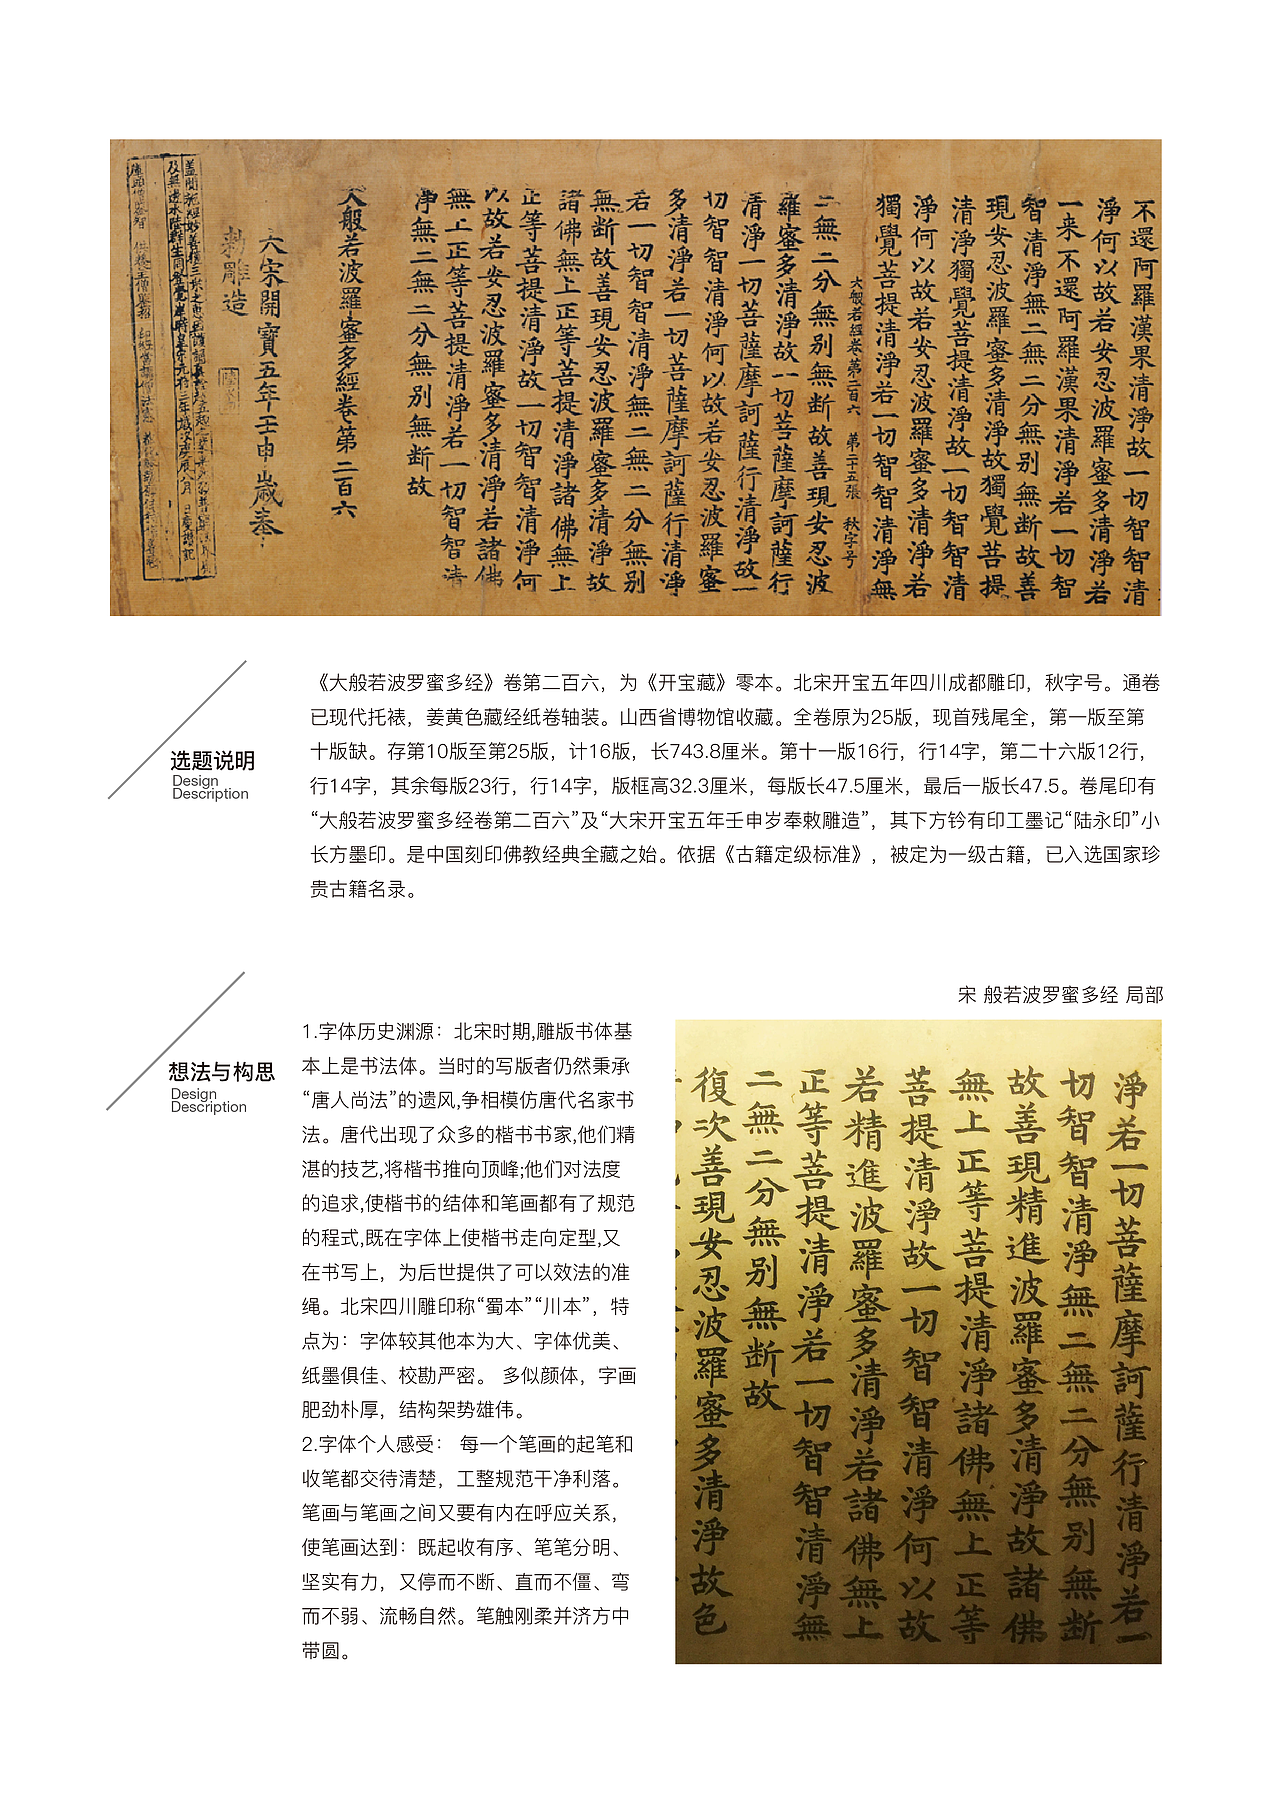 不還阿羅漢果清淨故一切智智清
淨何以故若安忍波羅蜜多清淨若
一来不還阿羅漢果清淨若一切智
智清淨無二無二分無别無断故善
現安忍波羅蜜多清淨故獨覺菩提
清淨獨覺菩提清淨故一切智智清
淨何以故若安忍波羅蜜多清淨若
獨覺菩提清淨若一切智智清淨無
大般若經卷第二百六 第二十五張 秋字号
二無二分無别無断故善現安忍波
羅蜜多清淨故一切菩薩摩訶薩行
清淨一切菩薩摩訶薩行清淨故一
切智智清淨何以故若安忍波羅蜜
多清淨若一切菩薩摩訶薩行清淨
若一切智智清淨無二無二分無别
無断故善現安忍波羅蜜多清淨故
諸佛無上正等菩提清淨諸佛無上
正等菩提清淨故一切智智清淨何
以故若安忍波羅蜜多清淨若諸佛
無上正等菩提清淨若一切智智清
淨無二無二分無别無断故
大般若波羅蜜多經卷第二百六
大宋開寳五年壬申歲奉
勑雕造
选题说明
Design
Description
《大般若波罗蜜多经》卷第二百六，为《开宝藏》零本。北宋开宝五年四川成都雕印，秋字号。通卷
已现代托裱，姜黄色藏经纸卷轴装。山西省博物馆收藏。全卷原为25版，现首残尾全，第一版至第
十版缺。存第10版至第25版，计16版，长743.8厘米。第十一版16行，行14字，第二十六版12行，
行14字，其余每版23行，行14字，版框高32.3厘米，每版长47.5厘米，最后一版长47.5。卷尾印有
“大般若波罗蜜多经卷第二百六”及“大宋开宝五年壬申岁奉敕雕造”，其下方钤有印工墨记“陆永印”小
长方墨印。是中国刻印佛教经典全藏之始。依据《古籍定级标准》，被定为一级古籍，已入选国家珍
贵古籍名录。
想法与构思
Design
Description
1.字体历史渊源：北宋时期,雕版书体基
本上是书法体。当时的写版者仍然秉承
“唐人尚法”的遗风,争相模仿唐代名家书
法。唐代出现了众多的楷书书家,他们精
湛的技艺,将楷书推向顶峰;他们对法度
的追求,使楷书的结体和笔画都有了规范
的程式,既在字体上使楷书走向定型,又
在书写上，为后世提供了可以效法的准
绳。北宋四川雕印称“蜀本”“川本”，特
点为：字体较其他本为大、字体优美、
纸墨俱佳、校勘严密。 多似颜体，字画
肥劲朴厚，结构架势雄伟。
2.字体个人感受： 每一个笔画的起笔和
收笔都交待清楚，工整规范干净利落。
笔画与笔画之间又要有内在呼应关系，
使笔画达到：既起收有序、笔笔分明、
坚实有力，又停而不断、直而不僵、弯
而不弱、流畅自然。笔触刚柔并济方中
带圆。
宋 般若波罗蜜多经 局部
淨若一切菩薩摩訶薩行清淨若一
切智智清淨無二無二分無别無断
故善現精進波羅蜜多清淨故諸佛
無上正等菩提清淨諸佛無上正等
菩提清淨故一切智智清淨何以故
若精進波羅蜜多清淨若諸佛無上
正等菩提清淨若一切智智清淨無
二無二分無别無断故
復次善現安忍波羅蜜多清淨故色